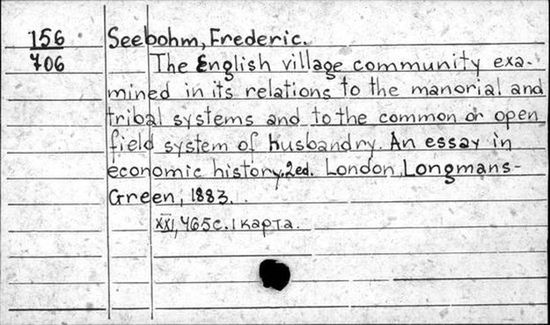 156
706
Seebohm, Frederic.
The English village community exa-
mined in its relations to the manorial and
tribal systems and to the common or open
field system of husbandry. An essay in
economic history. 2ed. London, Longmans-
Green, 1883.
XXI, 465 с. 1 карта.